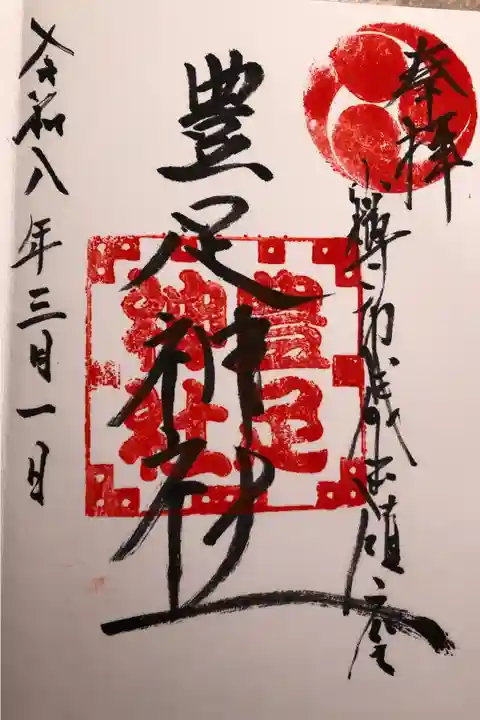 奉拝
小樽市
豊足神社
豊足
神社
令和八年三月一日